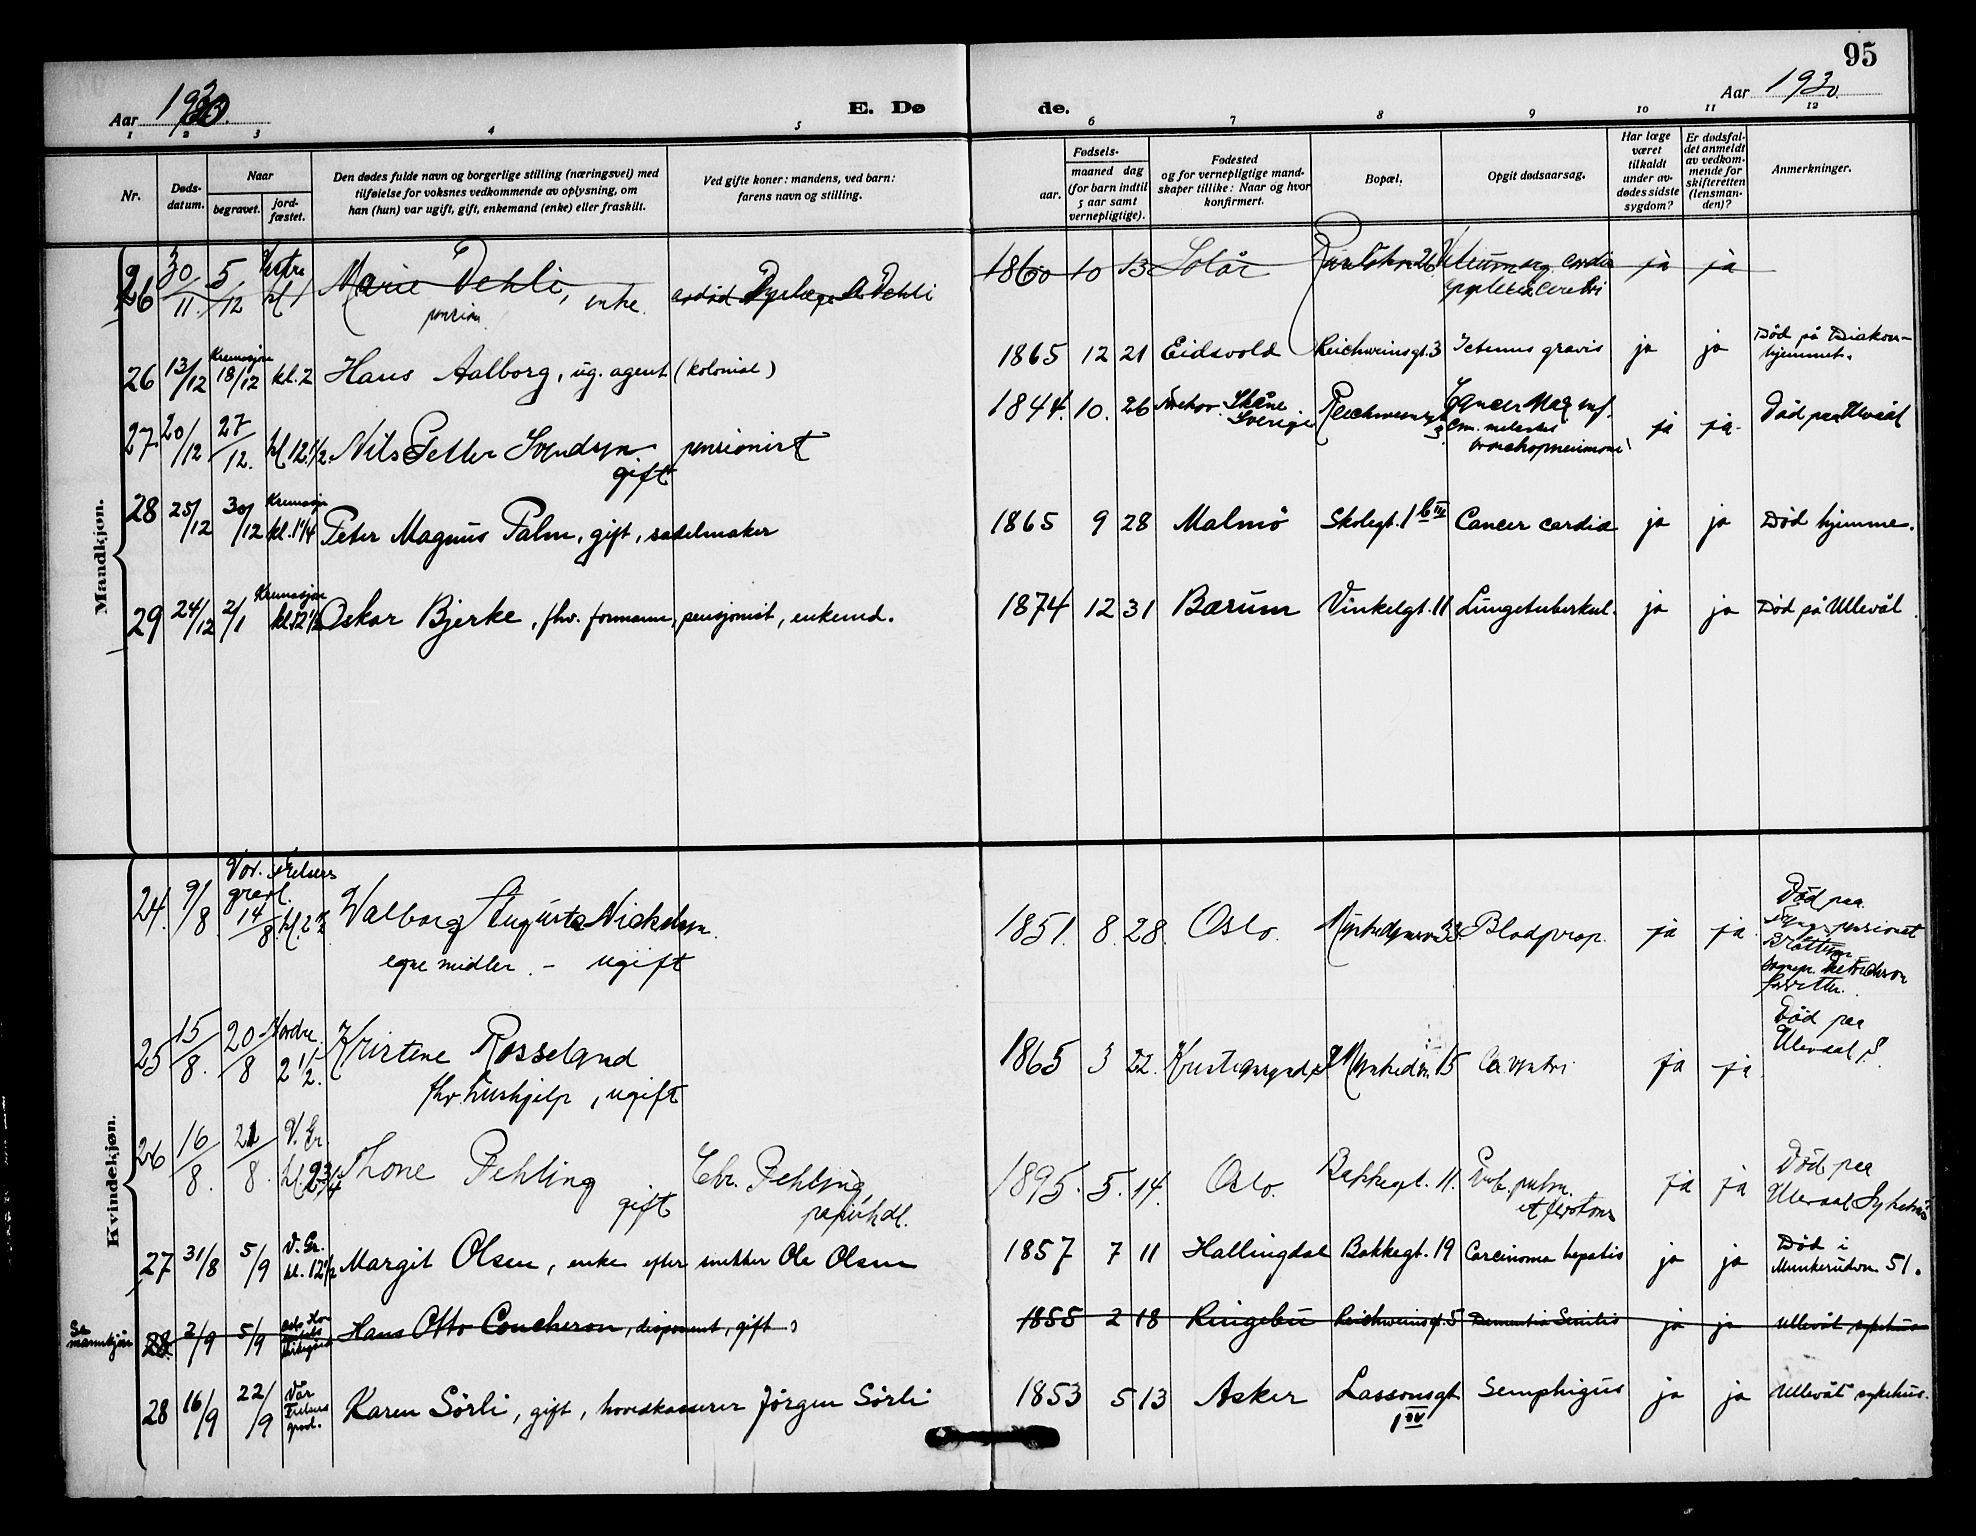 95
Aar 1930.
E. Dø
de.
Aar 1930.
1 2 3 4 5 6 7 8 9 10 11 12
Nr.
Døds-
datum.
Naar
begravet.
jord-
fæstet.
Den dødes fulde navn og borgerlige stilling (næringsvei) med
tilføielse for voksnes vedkommende av oplysning, om
han (hun) var ugift, gift, enkemand (enke) eller fraskilt.
Ved gifte koner: mandens, ved barn:
farens navn og stilling.
Fødsels-
aar.
maaned dag
(for barn indtil
5 aar samt
vernepligtige).
Fødested
og for vernepligtige mand-
skaper tillike: Naar og hvor
konfirmert.
Bopæl.
Opgit dødsaarsag.
Har læge
været
tilkaldt
under av-
dødes sidste
sygdom?
Er dødsfal-
det anmeldt
av vedkom-
mende for
skifteretten
(lensman-
den)?
Anmerkninger.
Mandkjøn.
26 30/11. 5/12 Vestre kl 1 Marie Dehli, enke. avdød Dyrlæge A Dehli 1860 10 13 Solør cordis ja ja
pension. cerebri
26 13/12 Kremasjon 18/12 kl. 2 Hans Aalborg, ug. agent (kolonial) 1865 12 21 Eidsvold Reichweinsgt. 3 Icterus gravis ja ja Død på Diakon-
hjemmet.
27 20/12 27/12. kl 12 1/2. Nils Petter Svendsen pensionist 1844. 10. 26 Skåne Cancer ja ja Død paa Ulevål
gift Sverige 3 bronchopneumoni
28 25/12 30/12 Kremasjon kl. 1 1/4 Peter Magnus Palm, gift, sadelmaker 1865 9 28 Malmö Skolegt. 16 III Cancer cardia ja ja Død hjemme.
29 24/12 2/1 Kremasjon kl. 12 1/2 Oskar Bjerke, fhv. formann, pensjonist, enkemd. 1874 12 31 Bærum Vinkelgt. 11 Lungetuberkul. ja ja Død på Ullevål
Kvindekjøn.
24. 9/8 Vor Frelsers gravl. 14/8. kl. 2 Valborg Augusta Nickelsen. 1851. 8. 28. Oslo. 33. Blodprop. ja ja. Død paa
egne midler. - ugift pensionat
25 15/8. 20/8 Nordre 2 1/2. Kristine Rosseland 1865 3 22. 15 Ca ventri ja ja. Død paa
fhv. hushjelp, ugift Ulevaal S.
26 16/8. 21/8. V. Gr. kl. 2 3/4 Thone Fehling Chr. Fehling, 1895. 5. 14. Oslo. Bakkegt. 11. Tub. pulm. ja ja Død paa
gift papirhdl. Ulevaal Sykehus
27 31/8 5/9 V. Gr. kl. 12 1/2 Margit Olsen, enke efter snekker Ole Olsen 1857 7 11 Hallingdal Bakkegt. 19 Carcinoma hepatis ja ja Død i
Munkerudvn. 51.
Se mannkjøn 28. 2/9 5/9 Hans Otto Coucheron, disponent, gift 1855 2 18 Ringebu Reichweinsgt. 5 Dementia Senilis ja ja Ullevål sykehus
28 16/9 22/9 Vår Frelsers grvl. Karen Sörli, gift, hovedkasserer Jörgen Sörli 1853 5 13 Asker Lassonsgt Semphigus ja ja Ullevål sykehus.
1 IV